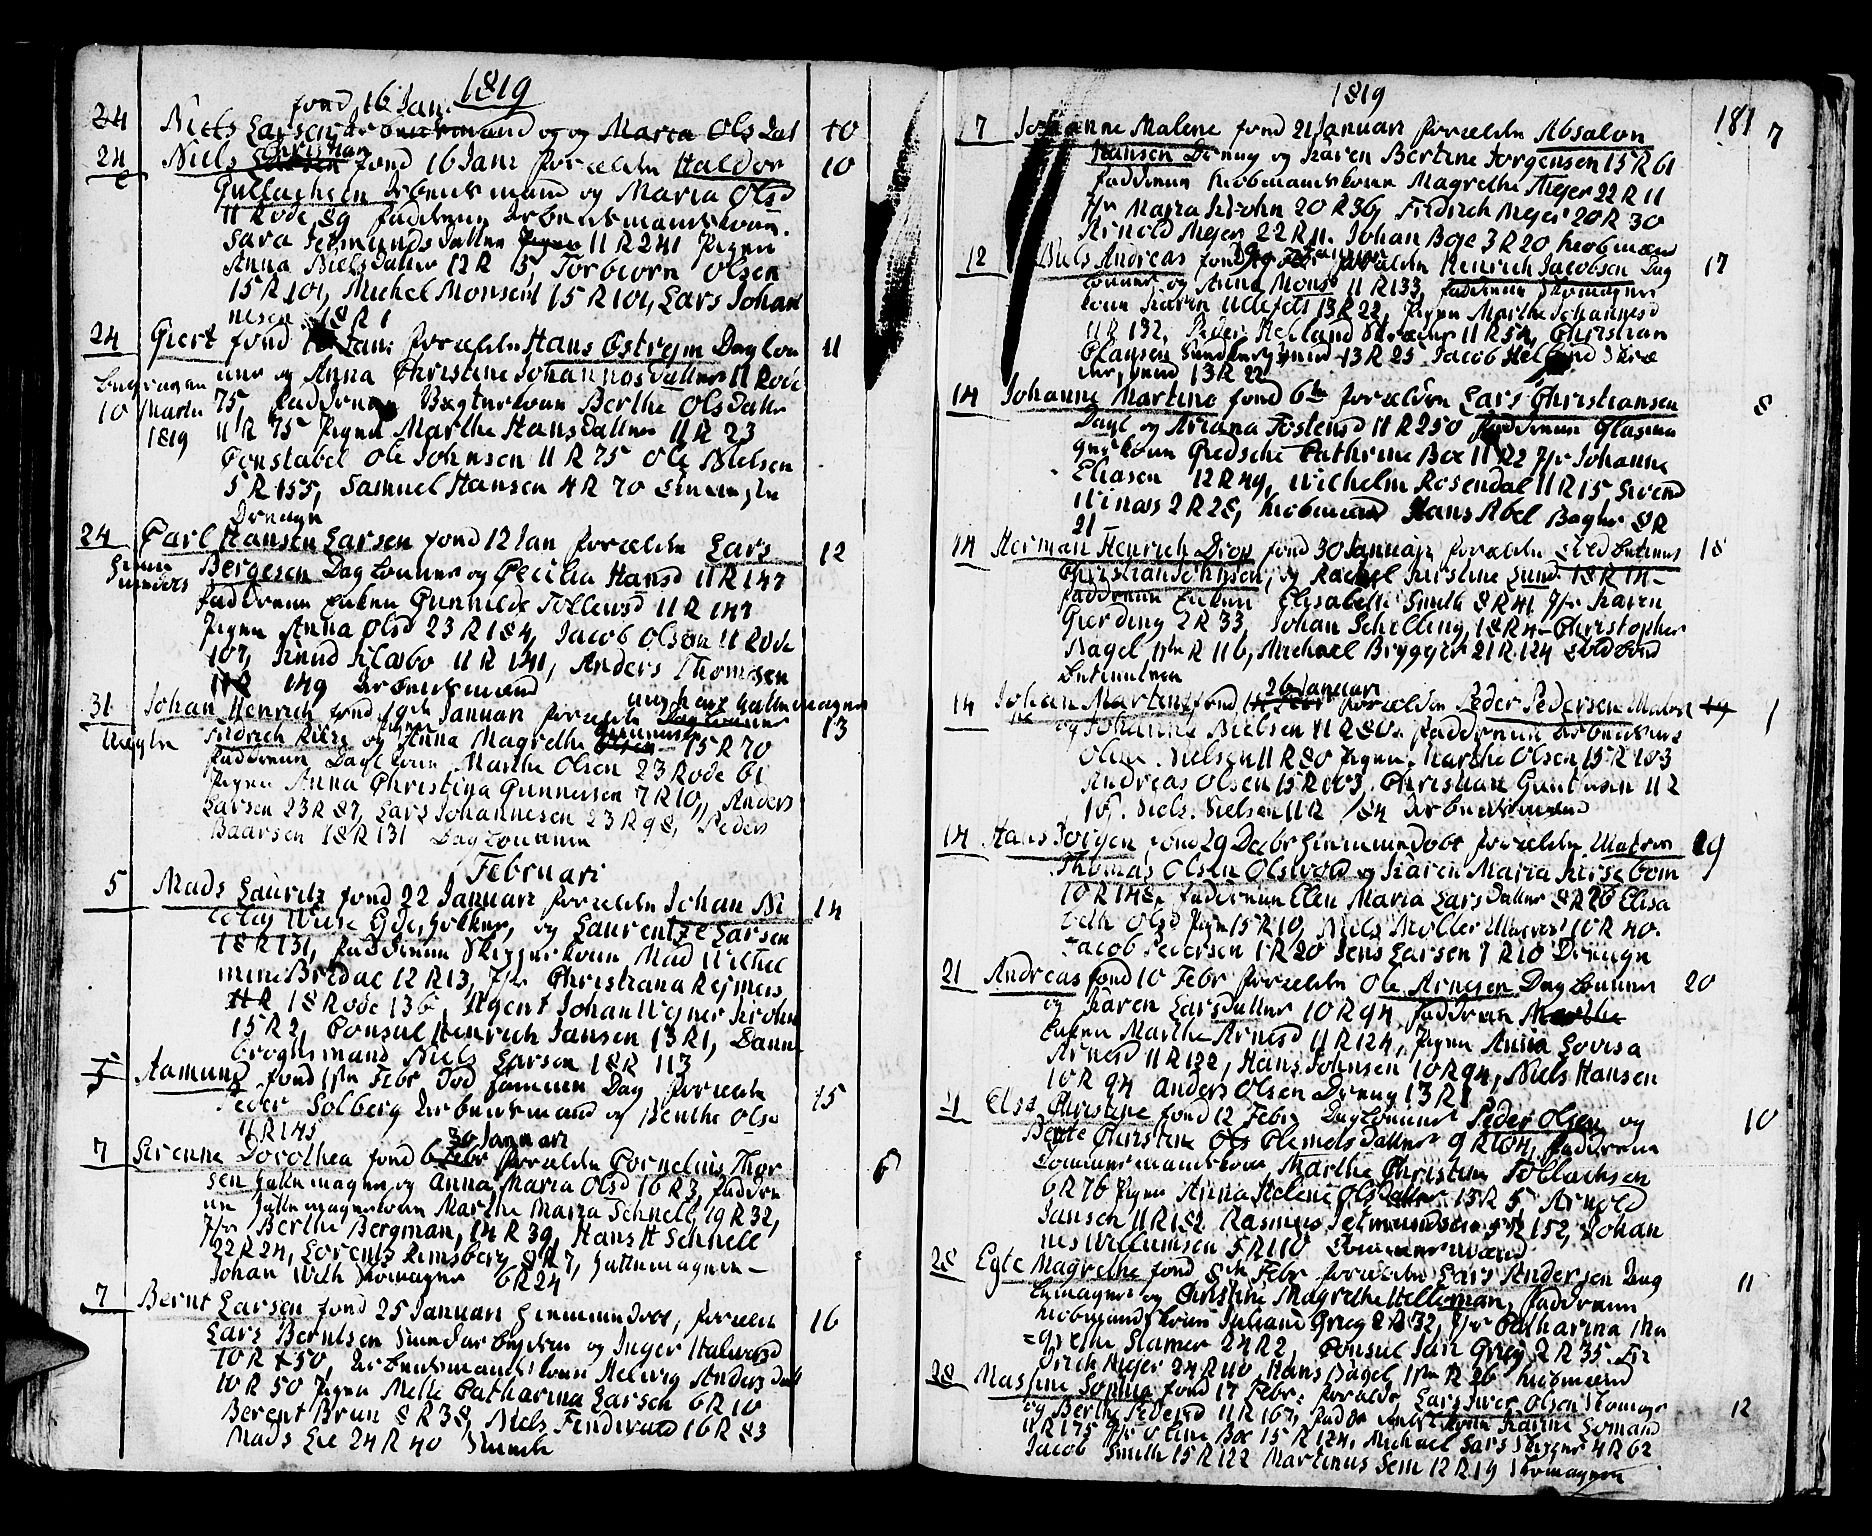 1819
fond 16 Jan.
24 Niels Larsen Arbeidsmand og og Maria Ols Dat 10
24 Niels Christian fond 16 Janr forældre Haldor 10
Gullachsen Arbeidsmand og Maria Olsd
11 Rode 89 faddrene Arbeidsmandskone
Sara Jetmunds Datter Pigen 11 R 241 Pigen
Anna Niels Datter 12 R 15, Torbiorn Olsen
15 R 101, Michel Monsen 15 R 101, Lars Johan
nesen 18 R 1
24 Giert fond Jan: forældre Hans Østrejm Dag lon 11
begraven ner og Anna Christine Johannas Datter 11 Rode
10 Martii 75, faddrene Bagterkone Berthe Ols Datter
1819 11 R 75 Pigen Marthe Hans Datter 11 R 23
Constabel Ole Johnsen 11 R 75 Ole Nielsen
5 R 155, Samuel Hansen 4 R 70
Drenge
24 Carl Hansen Larsen fond 12 Jan forældre Lars 12
Bergesen Daglonner og Cecilia Hansd 11 R 147
faddrene Enken Gunnilde Tollevsd 11 R 147
Pigen Anna Olsd 23 R 184, Jacob Olsen 11 Rode
107, Knud Klasbo 11 R 141, Anders Thomesen
11 R 149 Arbeidsmænd
31 Johan Henrich fond 19de Januari forældre Dag lonner 13
Fridrich og Anna Magrethe Olsen 15 R 70
faddrene Dagl kone Marthe Olsen 23 Rode 61
Pigen Anna Christina Gunnersen 7 R 10, Anders
Larsen 23 R 87, Lars Johannesen 23 R 98, Peder
Baarsen 18 R 131 Dag lonnene
Februari
5 Mads Lauritz fond 22 Januari forældre Johan Ni 14
colay Wiese og Laurentze Larsen
18 R 131, faddrene Skipperkone Mad Wilhel
mine Bredal 12 R 13, Jfr Christiana Rejmers
18 Rode 136, Agent Johan Wejner Krohn
15 R 2, Consul Henrich Jansen 13 R 1, Danne
brogsmand Niels Larsen 18 R 113
5 Aamund fond 1ste Febr Dod sammen Dag forældre 15
Peder Solberg Arbeidsmand og Benthe Olsd
11 R 145
30 Januari
7 Serenne Dorothea fond 6 Febr forældre Cornelius Thor 6
sen hattemager og Anna Maria Olsd 16 R 3, faddre
ne Hattemagerkone Marthe Maria Schnell 19 R 32,
Jfr Berthe Bergman, 14 R 39, Hans H Schnell
22 R 24, Lorentz Remsberg 8 R 7, hattemagere
Johan With Skomager 6 R 24
7 Bernt Larsen fond 25 Januari hiemmedobt, forældre 16
Lars Berntsen og Inger Halvorsd
10 R 50, Arbeidsmands kone Helwig Anders Datt
10 R 50 Pigen Mette Catharina Larsen 6 R 10
Berent Brun 8 R 38, Niels Findwed 16 R 83
Mads Eie 24 R 40
1819
181
7 Johanne Malene fond 21 Januari forældre Absalon 7
Hansen Dreng og Karen Bertine Jorgensen 15 R 61
faddrene kiobmandskone Magrethe Mejer 22 R 11
Jfr Maria Krohn 20 R 36, Fridrich Mejer 20 R 30
Arnold Mejer 22 R 11. Johan Boje 3 R 20 kiobmænd
12 Niels Andreas fond forældre Henrich Jacobsen Dag 17
lonner og Anna Monsd 11 R 133 faddrene Skomager
kone Karen Ullefelt 13 R 22, Pigen Marthe Johannesd
11 R 132, Peder Helland 11 R 54, Christian
Clausen 13 R 25 Jacob Skræ
der svend 13 R 22
14 Johanne Martine fond 6te forældre Lars Christiansen 8
Dagl og Ariana Tostensd 11 R 250 faddrene Glasme
Cathrine Boe 11 R 2 Jfr Johanne
Eliasen 12 R 49, Wilhelm Rosendal 11 R 15 Svend
Winass 2 R 28, kiobmand Hans Abel Bager 8 R
21
14 Herman Henrich Drop fond 30 Januari forældre 18
Christian Johnsen, og Rachel Kirstine Lund 18 R 14
faddrene Enken Elisabeth Smith 8 R 41 Jfr Karen
Gierding 2 R 33, Johan Schilling, 18 R 4 Christopher
Nagel 11te R 116, Michael Brygger 21 R 124
Betienterne
26 Januari
14 Johan Martin fond forældre Peder Pedersen Matros 19 1
og Johanne Nielsen 11 R 80 faddrene Arbeidsms
Oline Nielsen 11 R 80 Pigen Marthe Olsen 15 R 103
Andreas Olsen 15 R 103, Christian 11 R
Niels Nielsen 11 R 184 Arbeidsmænd
14 Hans Jorgen fond 29 Decbr hiemmedobt forældre Matros 19
Thomas Olsen Olsvold og Karen Maria Kirsebom
10 R 148, faddrene Elen Maria Lars Datter 8 R 26 Elisa
beth Olsd Pigen 15 R 10, Niels Moller Matros 10 R 40.
Jacob Pedersen 1 R 20 Jens Larsen 9 R 10 Drenge
21 Andreas fond 10 Febr forældre Ole Arnesen Dag lonner 20
og Karen Lars datter 10 R 94 faddrene Marthe
Enken Marthe Arnesd 11 R 124, Pigen Anna Lovisa
Arnesd 11 R 122, Hans Johnsen 10 R 94, Niels Hansen
10 R 94 Anders Olsen Dreng 13 R 1
21 Else Christine fond 12 Febr Daglonner Peder Olsen og 10
Bente Christine Ols Clemets Datter 9 R 104, faddrene
Marthe Christine Tollachsen
6 R 76 Pigen Anna Helene Ols Datter 13 R 5 Arnold
Jansen 11 R 182 Rasmus Jetmundsen 5 R 152, Johan
nes Willumsen 5 R 110
28 Egte Magrethe fond 8de Febr forældre Lars Andersen Dag 11
og Christine Magrethe Helleman, faddrene
kiobmands kone Juliane Grieg 2 R 32, Jfr Catharina Ma
=grethe Slamer 24 R 2, Consul Jan Greg 2 R 35 Fri
drich Mejer 24 R 110 Hans Bagel 11te R 26 kiobmænd
28 Massine Sophia fond 17 Febr: forældre Lars Iver Olsen Skomager 12
og Berthe Pedersd 11 R 167, faddr
11 R 175 Jfr Oline Boe 15 R 124, Michael Sars Skiper 4 R 62
Jacob Smith 15 R 122 Martinus Sem 12 R 19 Skomagere